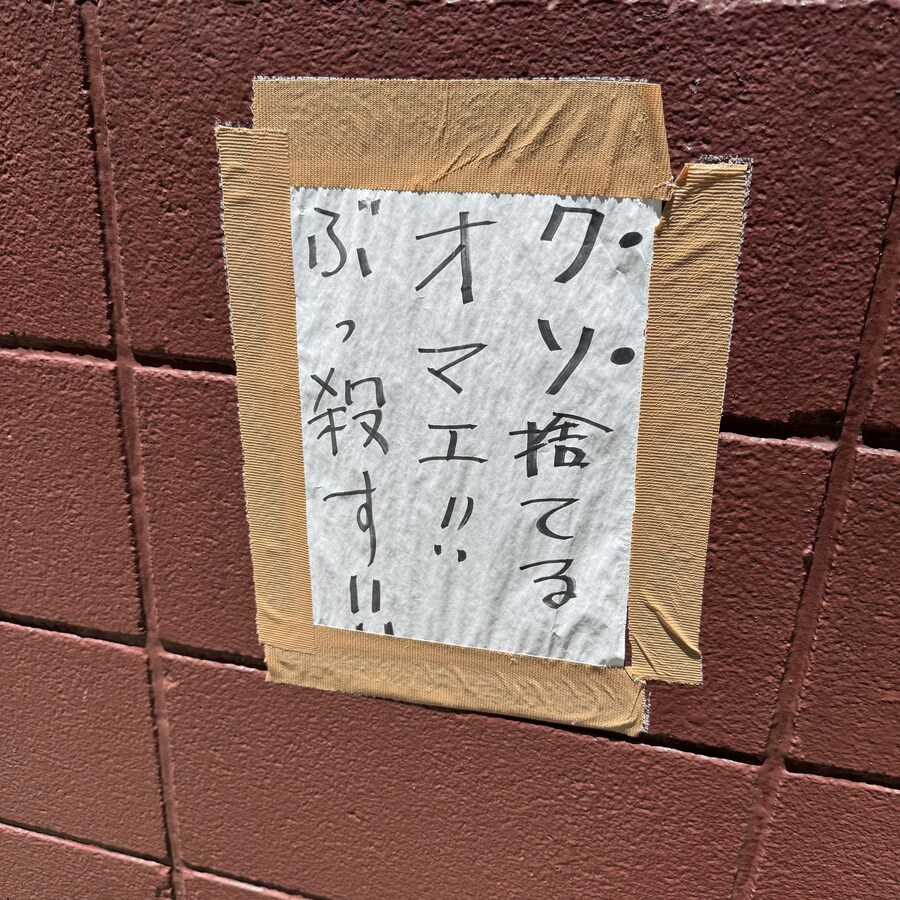 クソ捨てる
オマエ!!
ぶっ殺す!!